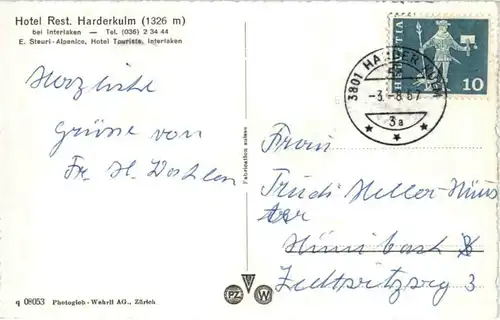 Hotel Rest. Harderkulm (1326 m)
bei Interlaken — Tel. (036) 2 34 44
E. Steuri-Alpenice, Hotel Touriste, Interlaken
HELVETIA
10
3801 HARDER KULM
-3.-8.67
3a
Herzliche
Grüsse von
Fr. H.
Frau
Trudi Heller-
Fabrication suisse
3
q 08053 Photogloh - Wehrli AG., Zürich
PZ W